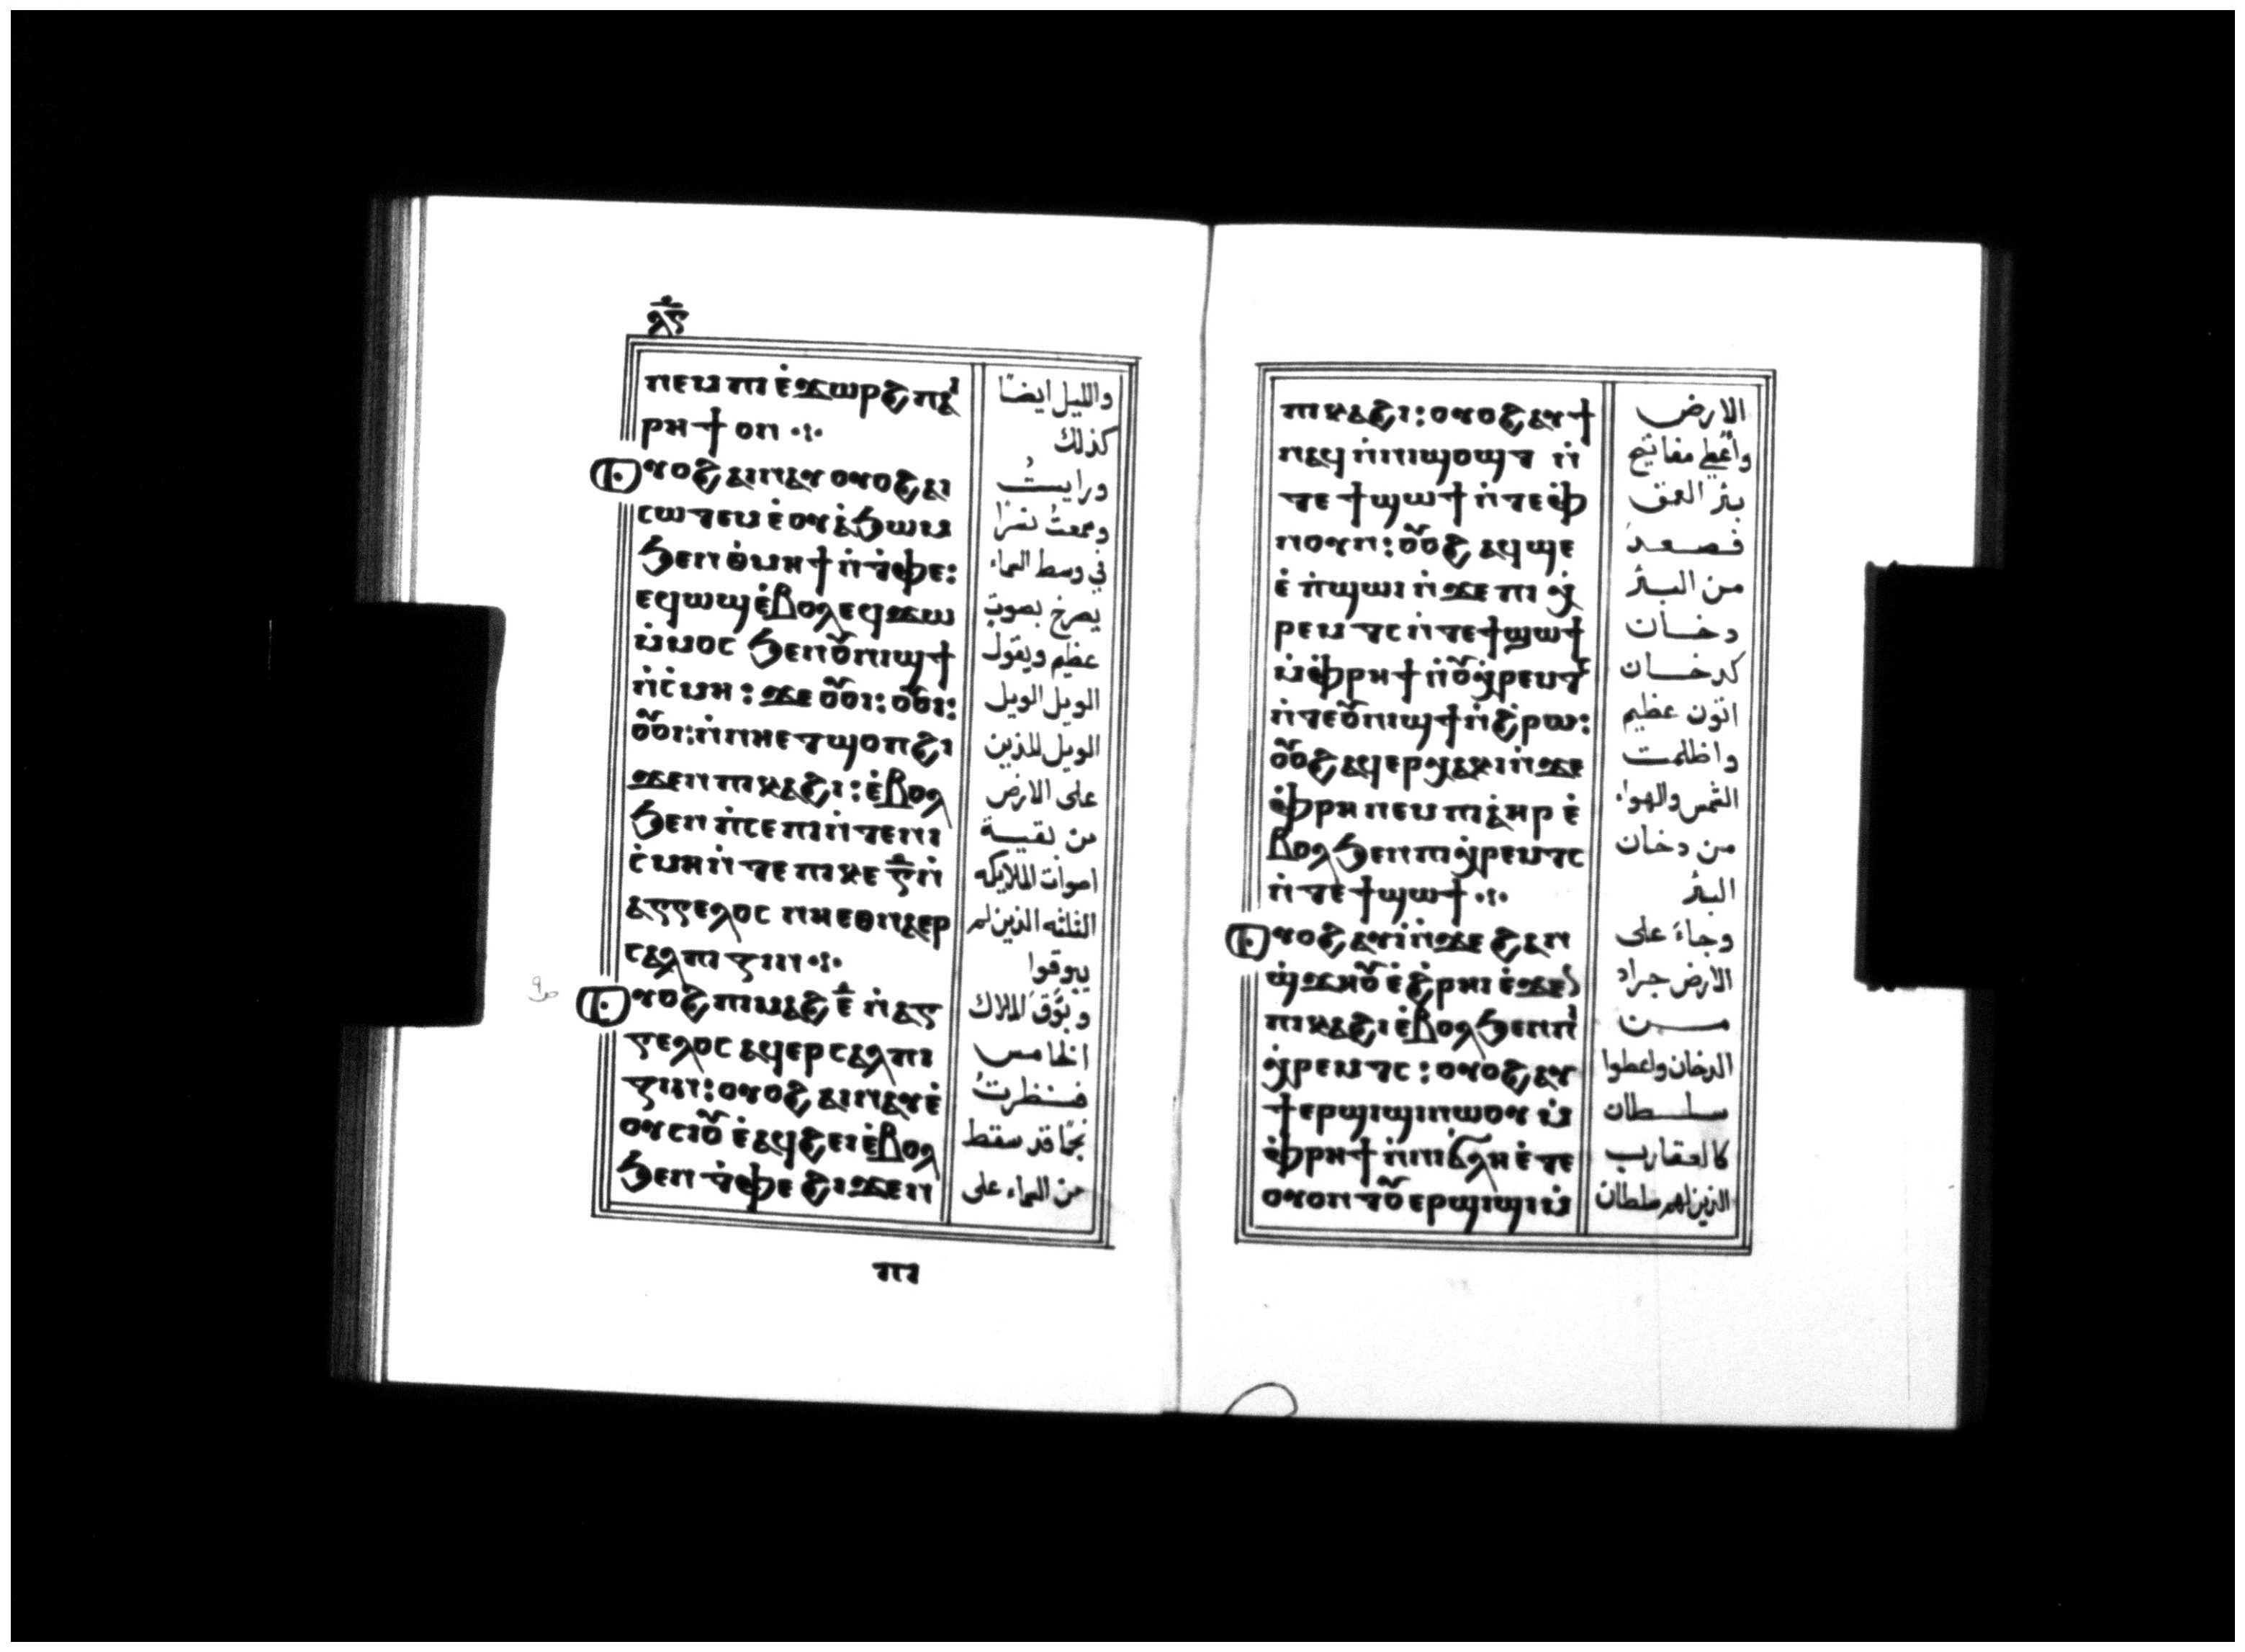 ⲗⲋ
ⲛⲉⲙ ⲡⲓⲉ̇ϫⲱⲣϩ ⲡⲁⲓ
ⲣⲏϯ ⲟⲛ ·:·
ⲟⲩⲟϩ ⲁⲓⲛⲁⲩ ⲟⲩⲟϩ ⲁⲓ
ⲥⲱⲧⲉⲙ ⲉ̇ⲟⲩⲁ̇ϧⲱⲙ
ϧⲉⲛ ⲑ̇ⲙⲏϯ ⲛ̇ⲧ̇ⲫⲉ:
ⲉϥⲱϣ ⲉ̇ⲃⲟⲗ ⲉϥϫⲱ
ⲙ̇ⲙⲟⲥ ϧⲉⲛ ⲟⲩⲛⲓϣϯ
ⲛ̇ⲥ̇ⲙⲏ: ϫⲉ ⲟⲩⲟⲓ: ⲟⲩⲟⲓ:
ⲟⲩⲟⲓ: ⲛ̇ⲛⲏⲉⲧϣⲟⲡ ϩⲓ
ϫⲉⲛ ⲡⲓⲕⲁϩⲓ: ⲉ̇ⲃⲟⲗ
ϧⲉⲛ ⲛ̇ⲥⲉⲡⲓ ⲛ̇ⲧⲉ ⲛⲓ
ⲥ̇ⲙⲏ ⲛ̇ⲧⲉ ⲡⲓⲕⲉ ⲅ̅ ⲛ̇
ⲁⲅⲅⲉⲗⲟⲥ ⲛⲏⲉⲑⲛⲁⲉⲣ
ⲥⲁⲗⲡⲓⲍⲓⲛ ·:·
ⲟⲩⲟϩ ⲡⲓⲙⲁϩ ⲉ̅ ⲛ̇ⲁⲅ
ⲅⲉⲗⲟⲥ ⲁϥⲉⲣⲥⲁⲗⲡⲓ
ⲍⲓⲛ: ⲟⲩⲟϩ ⲁⲓⲛⲁⲩ ⲉ̇
ⲟⲩⲥⲓⲟⲩ ⲉ̇ⲁϥϩⲉⲓ ⲉ̇ⲃⲟⲗ
ϧⲉⲛ ⲧ̇ⲫⲉ ϩⲓϫⲉⲛ
ⲡⲓ
والليل ايضًا
كذلك
ورايت
وسمعت نسرًا
في وسط السماء
يصرخ بصوت
عظيم ويقول
الويل الويل
الويل للذين
على الارض
من بقية
اصوات الملايكه
الثلثه الذين لم
يبوقوا
وبَوَّق الملاك
الخامس
فنظرت
نجمًا قد سقط
من السماء على
ص٩
ⲡⲓⲕⲁϩⲓ: ⲟⲩⲟϩ ⲁⲩϯ
ⲛⲁϥ ⲛ̇ⲛⲓϣⲟϣⲧ ⲛ̇
ⲧⲉ ϯϣⲱϯ ⲛ̇ⲧⲉ ⲫ̇
ⲛⲟⲩⲛ: ⲟⲩⲟϩ ⲁϥϣⲉ
ⲉ̇ ⲡ̇ϣⲱⲓ ⲛ̇ϫⲉ ⲡⲓ ⲭ̇
ⲣⲉⲙⲧⲥ ⲛ̇ⲧⲉ ϯϣⲱϯ
ⲙ̇ⲫ̇ⲣⲏϯ ⲛ̇ⲟⲩⲭ̇ⲣⲉⲙⲧⲥ
ⲛ̇ⲧⲉ ⲟⲩⲛⲓϣϯ ⲛ̇ϩ̇ⲣⲱ:
ⲟⲩⲟϩ ⲁϥⲉⲣⲭⲁⲕⲓ ⲛ̇ϫⲉ
ⲫ̇ⲣⲏ ⲛⲉⲙ ⲡⲓⲁ̇ⲏⲣ ⲉ̇
ⲃⲟⲗ ϧⲉⲛ ⲡⲓⲭ̇ⲣⲉⲙⲧⲥ
ⲛ̇ⲧⲉ ϯϣⲱϯ ·:·
ⲟⲩⲟϩ ⲁⲩⲓ̇ ⲛ̇ϫⲉ ϩⲁⲛ
ϣ̇ϫⲏⲟⲩ ⲉ̇ϩ̇ⲣⲏⲓ ⲉ̇ϫⲉⲛ
ⲡⲓⲕⲁϩⲓ ⲉ̇ⲃⲟⲗ ϧⲉⲛ ⲡⲓ
ⲭ̇ⲣⲉⲙⲧⲥ: ⲟⲩⲟϩ ⲁⲩ
ϯⲉⲣϣⲓϣⲓ ⲛⲱⲟⲩ ⲙ̇
ⲫ̇ⲣⲏϯ ⲛ̇ⲛⲓϭⲗⲏ ⲉ̇ⲧⲉ
ⲟⲩⲟⲛⲧⲟⲩ ⲉⲣϣⲓϣⲓ ⲙ̇
الارض
واُعطي مفاتيح
بئر العمق
فصعد
من البئر
دخان
كدخان
اتون عظيم
واظلمت
الشمس والهواء
من دخان
البئر
وجاء على
الارض جراد
من
الدخان واعطوا
سلطان
كالعقارب
الذين لهم سلطان